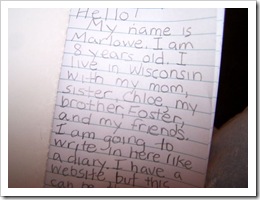 Hello!
My name is
Marlowe. I am
8 years old. I
live in Wisconsin
with my mom,
sister, Chloe, my
brother, Foster,
and my friends.
I am going to
write in here like
a diary. I have a
website, but this
can